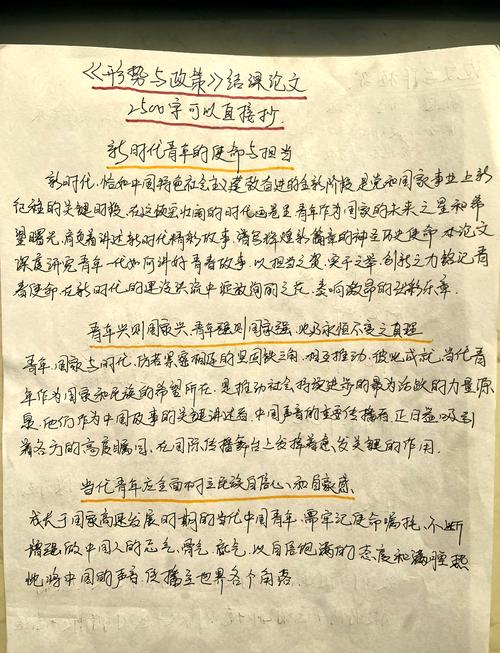 《形势与政策》结课论文
2500字可以直接抄.
新时代青年的使命与担当
新时代,恰如中国特色社会主义蓬勃奋进的全新阶段,是党和国家事业上新
纪程的关键时段.在这颂宏壮阔的时代画卷里青年作为国家的未来之星和希
望曙光,肩负着讲述新时代精彩故事,谱写辉煌新篇章的神圣历史使命.本论文
深度研究青年一代如何讲好青春故事,以担当之姿,实干之举,创新之力铭记青
春使命,在新时代的建设洪流中绽放绚丽之花,奏响激昂的动彩乐章.
青年兴则国家兴,青年强则国家强,此乃永恒不变之真理
青年,国家与时代,仿若紧密相连的坚固铁三角,相互推动,彼此成就,当代青
年作为国家和民族的希望所在,是推动社会持续进步的最为活跃的力量源
泉.他们作为中国故事的关键讲述者,中国声音的重要传播者,正日益吸引
着各方的高度瞩目,在国际传播舞台上发挥着愈发关键的作用.
当代青年应全面树立民族自信心和自豪感、
成长于国家高速发展时期的当代中国青年,需牢记使命嘱托,不断
增强做中国人的志气,骨气,底气,以自信饱满的态度和满腔热
忱将中国的声音,传播至世界各个角落.